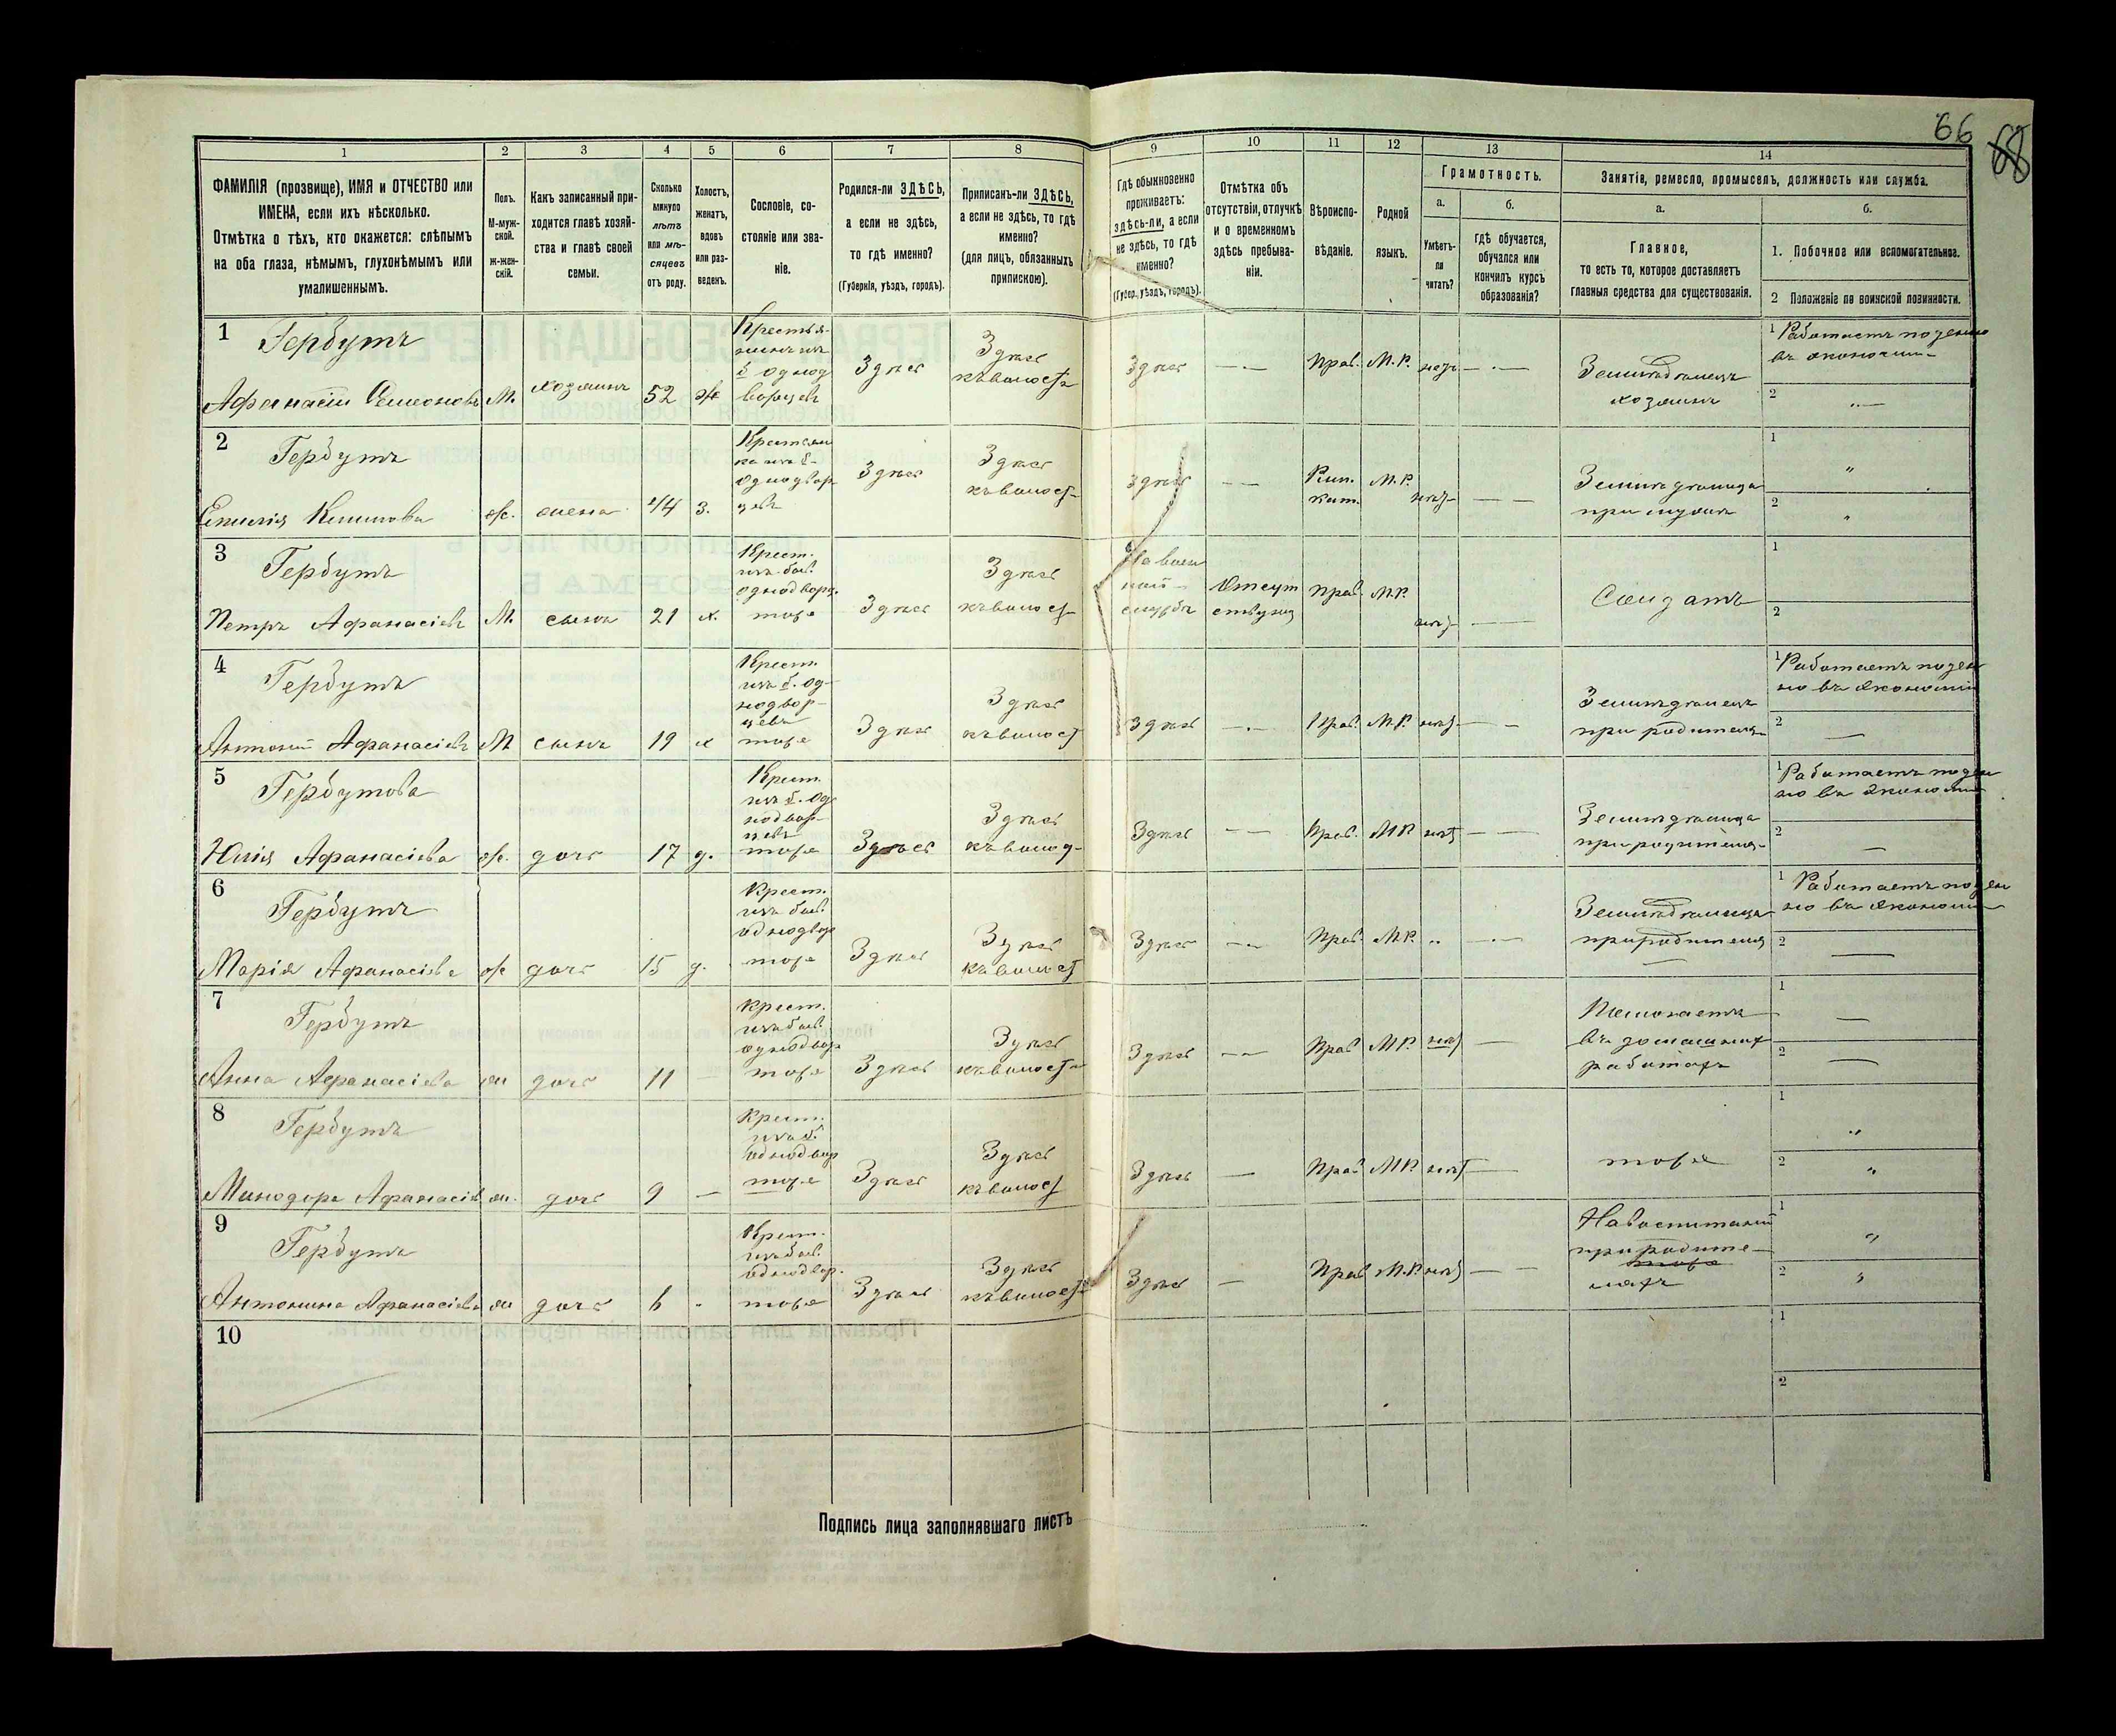 66
68
1
2
3
4
5
6
7
8
9
10
11
12
13
14
ФАМИЛІЯ (прозвище), ИМЯ и ОТЧЕСТВО или
ИМЕНА, если ихъ нѣсколько.
Отмѣтка о тѣхъ, кто окажется: слѣпымъ
на оба глаза, нѣмымъ, глухонѣмымъ или
умалишеннымъ.
Полъ.
М-муж-
ской.
ж-жен-
скій.
Какъ записанный при-
ходится главѣ хозяй-
ства и главѣ своей
семьи.
Сколько
минуло
лѣтъ
или мѣ-
сяцевъ
отъ роду.
Холостъ,
женатъ,
вдовъ
или раз-
веденъ.
Сословіе, со-
стояніе или зва-
ніе.
Родился-ли ЗДѢСЬ,
а если не здѣсь,
то гдѣ именно?
(Губернія, уѣздъ, городъ).
Приписанъ-ли ЗДѢСЬ,
а если не здѣсь, то гдѣ
именно?
(для лицъ, обязанныхъ
припискою).
Гдѣ обыкновенно
проживаетъ:
здѣсь-ли, а если
не здѣсь, то гдѣ
именно?
(Губер., уѣздъ, городъ).
Отмѣтка объ
отсутствіи, отлучкѣ
и о временномъ
здѣсь пребыва-
ніи.
Вѣроиспо-
вѣданіе.
Родной
языкъ.
Грамотность.
а.
Умѣетъ-
ли
читать?
б.
гдѣ обучается,
обучался или
кончилъ курсъ
образованія?
Занятіе, ремесло, промыселъ, должность или служба.
а.
Главное,
то есть то, которое доставляетъ
главныя средства для существованія.
б.
1. Побочное или вспомогательное.
2 Положеніе по воинской повинности.
1
Гербутъ
Афанасій Семеновъ М. хозяинъ 52 ж
Крестья-
нинъ изъ
б. однод
ворцевъ
Здѣсь
Здѣсь
къ волости
Здѣсь
Прав. М.Р. нѣтъ
Земледѣлецъ
хозяинъ
1 Работаетъ поденно
въ экономіи
2
2
Гербутъ
Емилія Климова ж. жена 44 з.
Крестьян
ка изъ б.
однодвор
цевъ
Здѣсь
Здѣсь
къ волост
Здѣсь
Рим.
кат.
М.Р. нѣтъ
Земледѣлица
при мужѣ
1
2
3
Гербутъ
Петръ Афанасіевъ М. сынъ 21 х.
Крест.
изъ быв.
однодворц.
тоже
Здѣсь
Здѣсь
къ волост
На воен
ной
службѣ
Отсут
ствуетъ
Прав. М.Р. нѣтъ
Солдатъ
1
2
4
Гербутъ
Антоній Афанасіевъ М сынъ 19 х
Крест.
изъ б. од-
нодвор-
цевъ
тоже
Здѣсь
Здѣсь
къ волост
Здѣсь
Прав. М.Р. нѣтъ
Земледѣлецъ
при родителя
1 Работаетъ поден
но въ экономіи
2
5
Гербутова
Юлія Афанасіева ж. дочь 17 д.
Крест.
изъ б. од
нодвор-
цевъ
тоже
Здѣсь
Здѣсь
къ волост
Здѣсь
Прав. МР. нѣт
Земледѣлица
при родителя
1 Работаетъ поден
но въ экономіи
2
6
Гербутъ
Марія Афанасіева ж дочь 15 д.
Крест.
изъ быв.
однодвор
тоже
Здѣсь
Здѣсь
къ волост
Здѣсь
Прав. МР. "
Земледѣлица
при родителя
1 Работаетъ поден
но въ экономіи
2
7
Гербутъ
Анна Афанасіева ж дочь 11
Крест.
изъ быв.
однодвор
тоже
Здѣсь
Здѣсь
къ волост
Здѣсь
Прав МР. нѣт
Помогаетъ
въ домашних
работахъ
1
2
8
Гербутъ
Минодора Афанасіев ж. дочь 9
Крест.
изъ б.
однодвор
тоже
Здѣсь
Здѣсь
къ волост
Здѣсь
Прав МР. нѣт
тоже
1
2
9
Гербутъ
Антонина Афанасіева ж дочь 6
Крест.
изъ быв.
однодвор.
тоже
Здѣсь
Здѣсь
къ волост
Здѣсь
Прав М.Р. нѣт
На воспитаніи
при родите-
ляхъ
1
2
10
1
2
Подпись лица заполнявшаго листъ